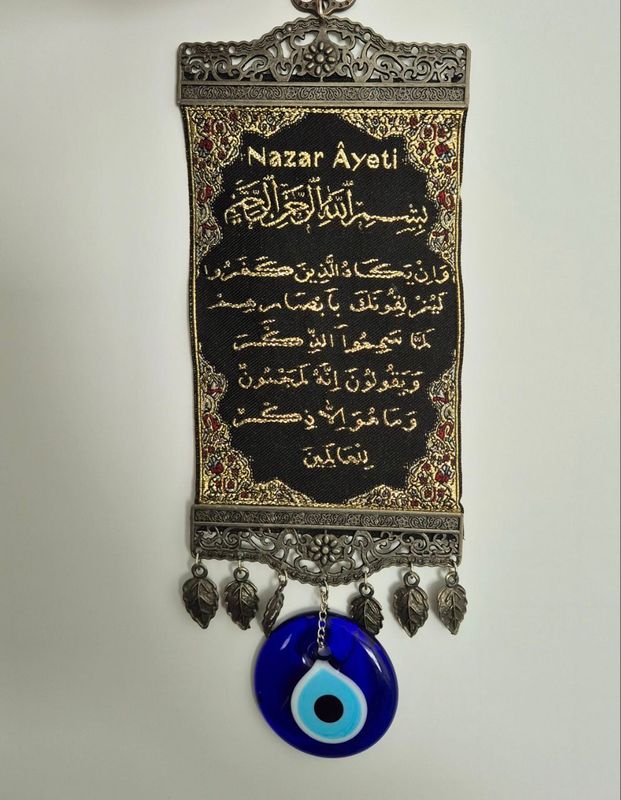 Nazar Âyeti
بِسْمِ اللّٰهِ الرَّحْمٰنِ الرَّحِيمِ
وَاِنْ يَكَادُ الَّذِينَ كَفَرُوا
لَيُزْلِقُونَكَ بِاَبْصَارِهِمْ
لَمَّا سَمِعُوا الذِّكْرَ
وَيَقُولُونَ اِنَّهُ لَمَجْنُونٌ
وَمَا هُوَ اِلَّا ذِكْرٌ
لِلْعَالَمِينَ